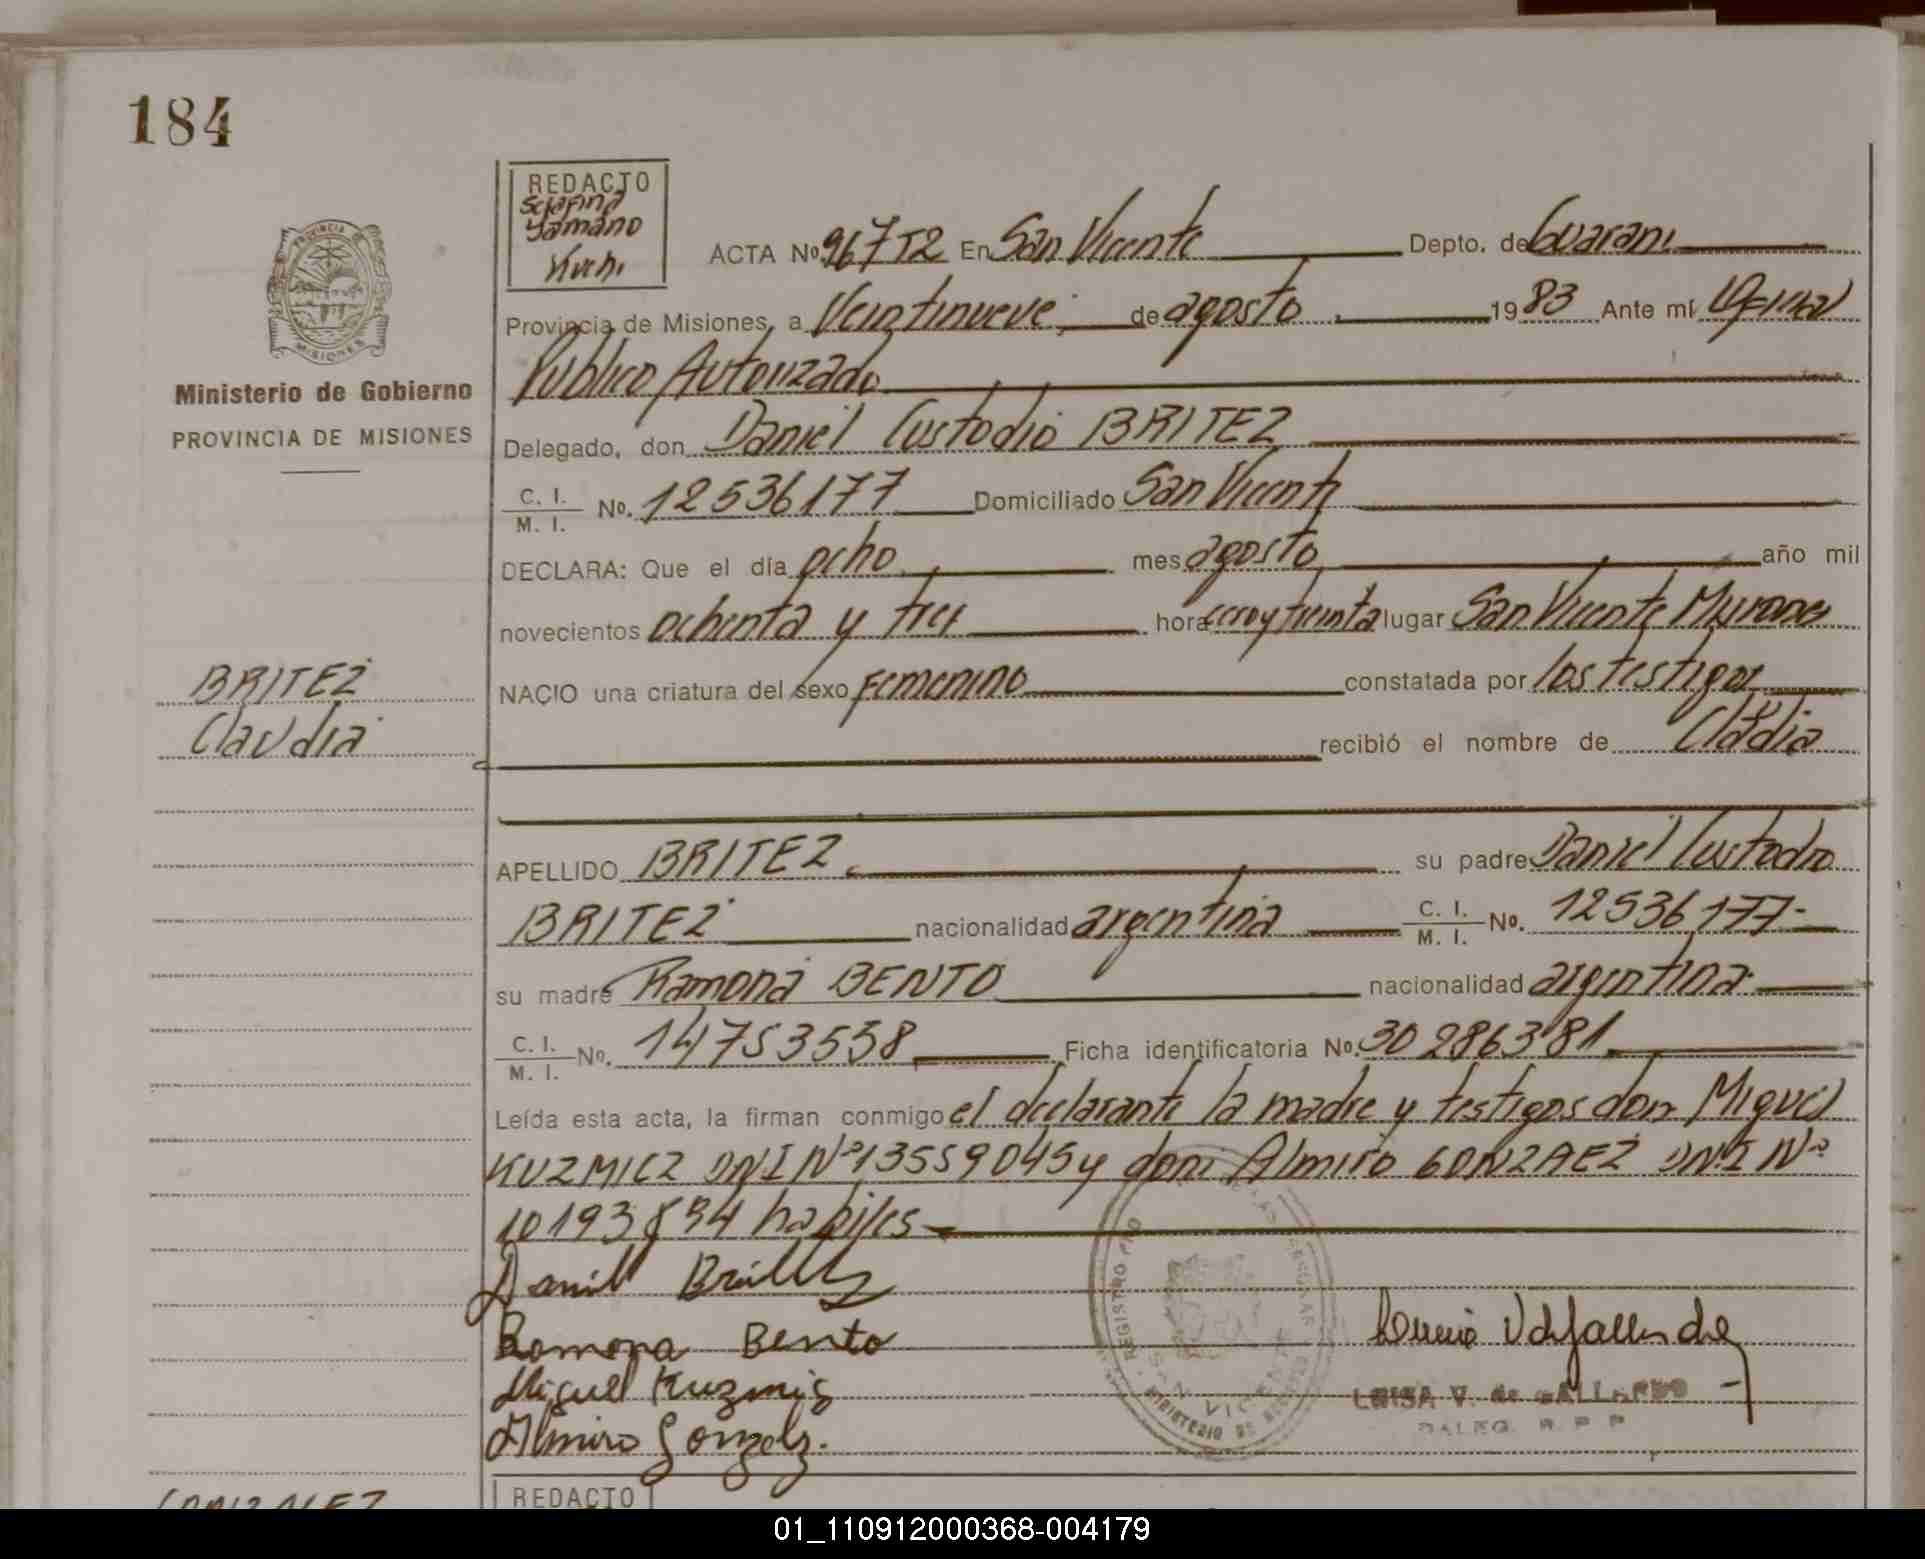 184
REDACTO
Yamano
Kuhn
ACTA Nº 967 T2 En San Vicente Depto. de Guarani
Provincia de Misiones, a Veintinueve de agosto 1983 Ante mí Oficial
Publico Autorizado
Ministerio de Gobierno
PROVINCIA DE MISIONES
Delegado, don Daniel Custodio BRITEZ
C. I. / M. I. Nº. 12536177 Domiciliado San Vicente
DECLARA: Que el día ocho mes agosto año mil
novecientos ochenta y tres hora cero y treinta lugar San Vicente Misiones
BRITEZ
Claudia
NACIO una criatura del sexo Femenino constatada por los testigos
recibió el nombre de Claudia
APELLIDO BRITEZ su padre Daniel Custodio
BRITEZ nacionalidad argentina C. I. / M. I. Nº. 12536177
su madre Ramona BENTO nacionalidad argentina
C. I. / M. I. Nº. 14753558 Ficha identificatoria Nº. 30286381
Leída esta acta, la firman conmigo el declarante la madre y testigos don Miguel
KUZMICZ DNI Nº 13559045 y don Almiro GONZAEZ DNI Nº
10193894 habiles
Daniel Britez
Ramona Bento
Miguel Kuzmicz
Almiro Gonzalez.
REGISTRO PCIO
SAN VICENTE
MINISTERIO DE GOBIERNO
LUISA V. de GALLARDO
DALEG. R. P. P
GONZALEZ
REDACTO
01_110912000368-004179